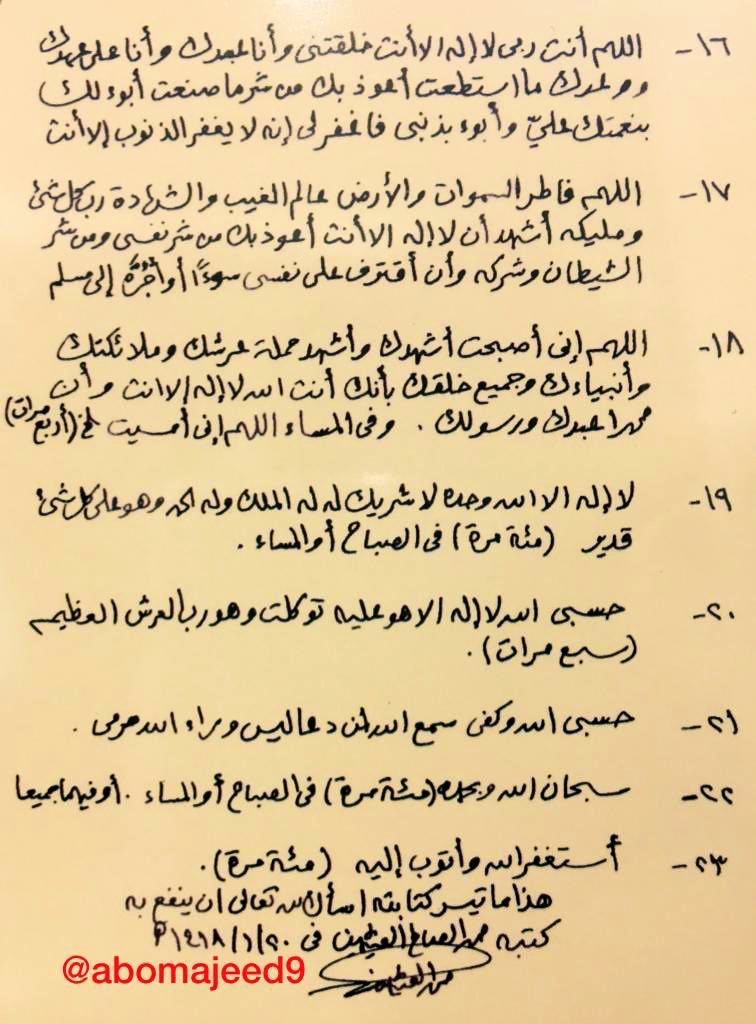 ١٦- اللهم أنت ربى لا إله إلا أنت خلقتنى وأنا عبدك وأنا على عهدك
ووعدك ما استطعت أعوذ بك من شر ما صنعت أبوء لك
بنعمتك عليّ وأبوء بذنبى فاغفر لى إنه لا يغفر الذنوب إلا أنت
١٧- اللهم فاطر السموات والأرض عالم الغيب والشهادة رب كل شئ
ومليكه أشهد أن لا إله إلا أنت أعوذ بك من شر نفسى ومن شر
الشيطان وشركه وأن أقترف على نفسى سوءًا أو أجُرَّه إلى مسلم
١٨- اللهم إنى أصبحت أشهدك وأشهد حملة عرشك وملائكتك
وأنبياءك وجميع خلقك بأنك أنت الله لا إله إلا انت وأن
محمدا عبدك ورسولك . وفى المساء اللهم إنى أمسيت الخ (أربع مرات)
١٩- لا إله الا الله وحده لا شريك له له الملك وله الحمد وهو على كل شئ
قدير (مئة مرة) فى الصباح أو المساء .
٢٠- حسبى الله لا إله الا هو عليه توكلت وهو رب العرش العظيم
(سبع مرات) .
٢١- حسبى الله وكفى سمع الله لمن دعا ليس وراء الله مرمى .
٢٢- سبحان الله وبحمده (مئة مرة) فى الصباح أو المساء . أو فيهما جميعا
٢٣- أستغفر الله وأتوب إليه (مئة مرة) .
هذا ما تيسر كتابته اسأل الله تعالى ان ينفع به
كتبه محمد الصالح العثيمين فى ١٤١٨/١/٢٠ هـ
محمد العثيمين
@abomajeed9